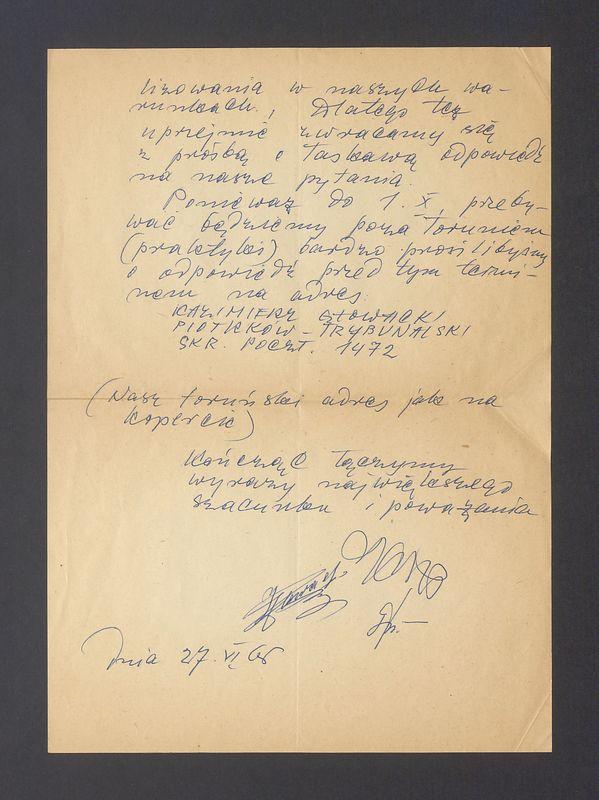 lizowania w naszych wa-
runkach. Dlatego też
uprzejmie zwracamy się
z prośbą o łaskawą odpowiedź
na nasze pytania.
Ponieważ do 1. X. przeby-
wać będziemy poza Toruniem
(praktyki) bardzo prosilibyśmy
o odpowiedź przed tym termi-
nem na adres:
KAZIMIERZ GŁOWACKI
PIOTRKÓW - TRYBUNALSKI
SKR. POCZT. 1472
(Nasz toruński adres jak na
kopercie)
Kończąc łączymy
wyrazy największego
szacunku i poważania
Dnia 27. VI